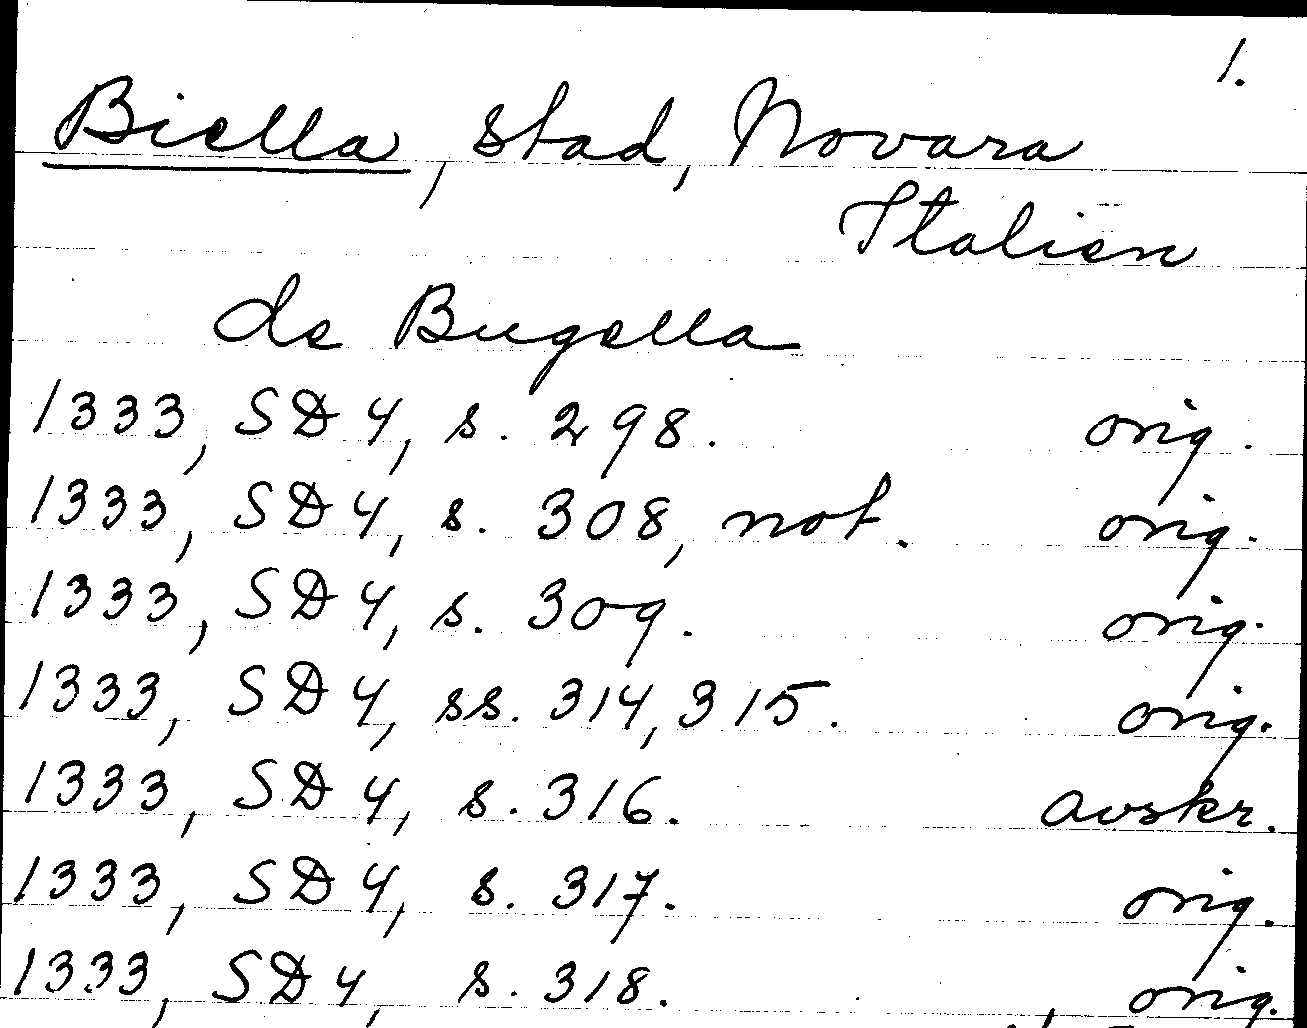 1.
Biella, stad, Novara
Italien
de Bugella
1333, SD 4, s. 298. orig.
1333, SD 4, s. 308, not. orig.
1333, SD 4, s. 309. orig.
1333, SD 4, ss. 314, 315. orig.
1333, SD 4, s. 316. avskr.
1333, SD 4, s. 317. orig.
1333, SD 4, s. 318. orig.